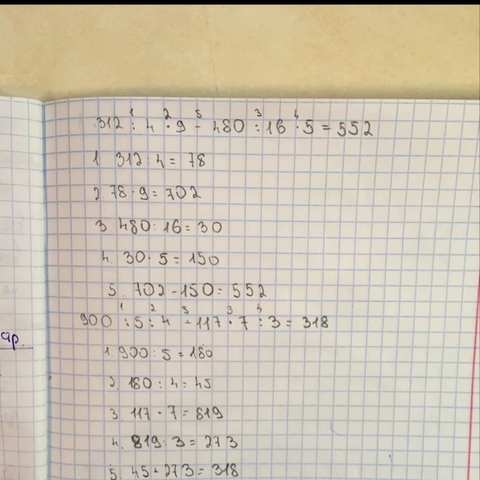 1 2 5 3 4
312 : 4 · 9 - 480 : 16 · 5 = 552
1. 312 : 4 = 78
2. 78 · 9 = 702
3. 480 : 16 = 30
4. 30 · 5 = 150
5. 702 - 150 = 552
1 2 5 3 4
900 : 5 : 4 + 117 · 7 : 3 = 318
ар.
1. 900 : 5 = 180
2. 180 : 4 = 45
3. 117 · 7 = 819
4. 819 : 3 = 273
5. 45 + 273 = 318